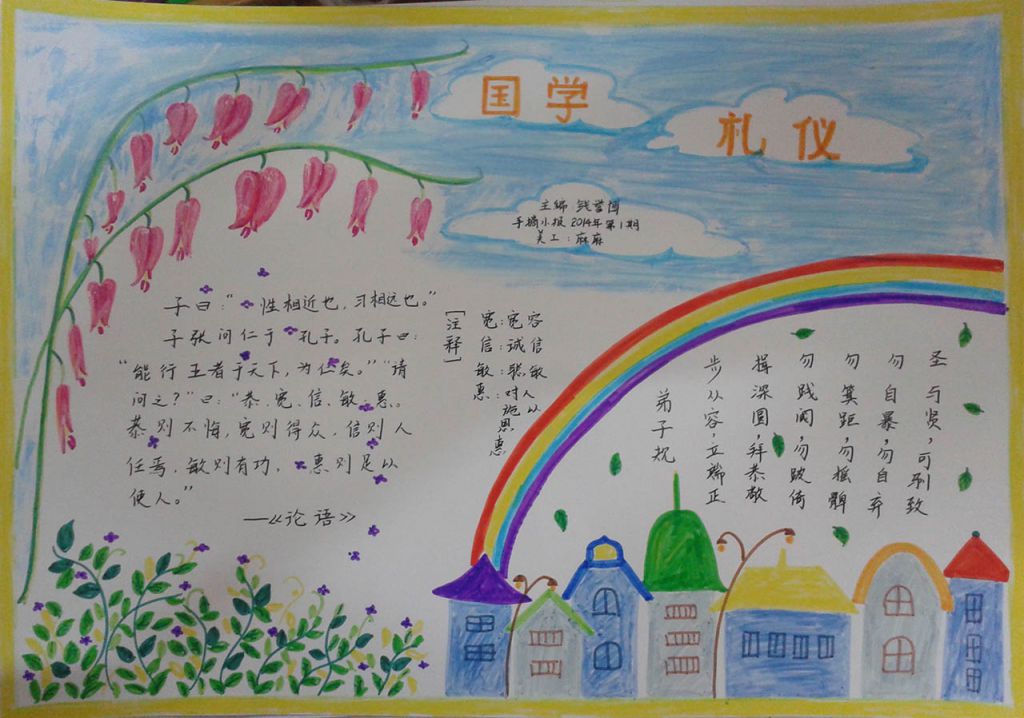 国学
礼仪
主编
2014年第1期
美工：麻麻
子曰："性相近也，习相远也。"
子张问仁于孔子。孔子曰：
"能行王者于天下，为仁矣。""请
问之？"曰："恭、宽、信、敏、惠。
恭则不悔，宽则得众，信则人
任焉，敏则有功，惠则足以
使人。"
—《论语》
[注释]
宽：宽容
信：诚信
敏：聪敏
惠：对人
施以
恩
惠
弟子规
步从容，立端正
揖深圆，拜恭敬
勿践阈，勿跛倚
勿箕距，勿摇髀
勿自暴，勿自弃
圣与贤，可驯致